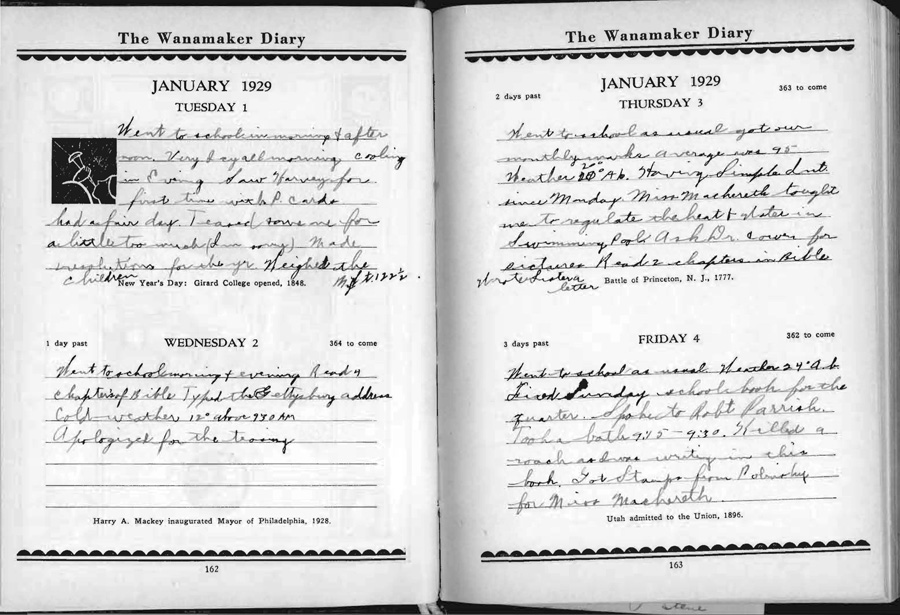 The Wanamaker Diary
JANUARY 1929
TUESDAY 1
Went to school in morning & after
noon. Very dry all morning cooling
in Evning Saw Harvey for
first time with P. Cards
had a fair day. Teased some one for
a little too much (I'm sorry) Made
resolutions for the yr Weighed the
children
My wt. 122½
New Year's Day: Girard College opened, 1848.
1 day past
WEDNESDAY 2
364 to come
Went to school morning & evening Read 4
chapters of Bible Typed the Gettysburg address
Cold weather 12° above 930 AM
Apologized for the teasing
Harry A. Mackey inaugurated Mayor of Philadelphia, 1928.
162
The Wanamaker Diary
JANUARY 1929
2 days past
363 to come
THURSDAY 3
Went to school as usual got our
monthly marks average was 95
Weather 20° Ab. Having Simple
since Monday Miss Machereth tought
me to regulate the heat & water in
Swimming Pool Ask Dr. for
pictures Read 2 chapters in Bible
Wrote Sister a
letter
Battle of Princeton, N. J., 1777.
3 days past
FRIDAY 4
362 to come
Went to school as usual. Weather 24° A.b.
Fixed Sunday school book for the
quarter. Spoke to Robt Parrish.
Took a bath 9:15 - 9:30. Killed a
roach as I was writing in this
book. Got Stamps from
for Miss Machereth.
Utah admitted to the Union, 1896.
163